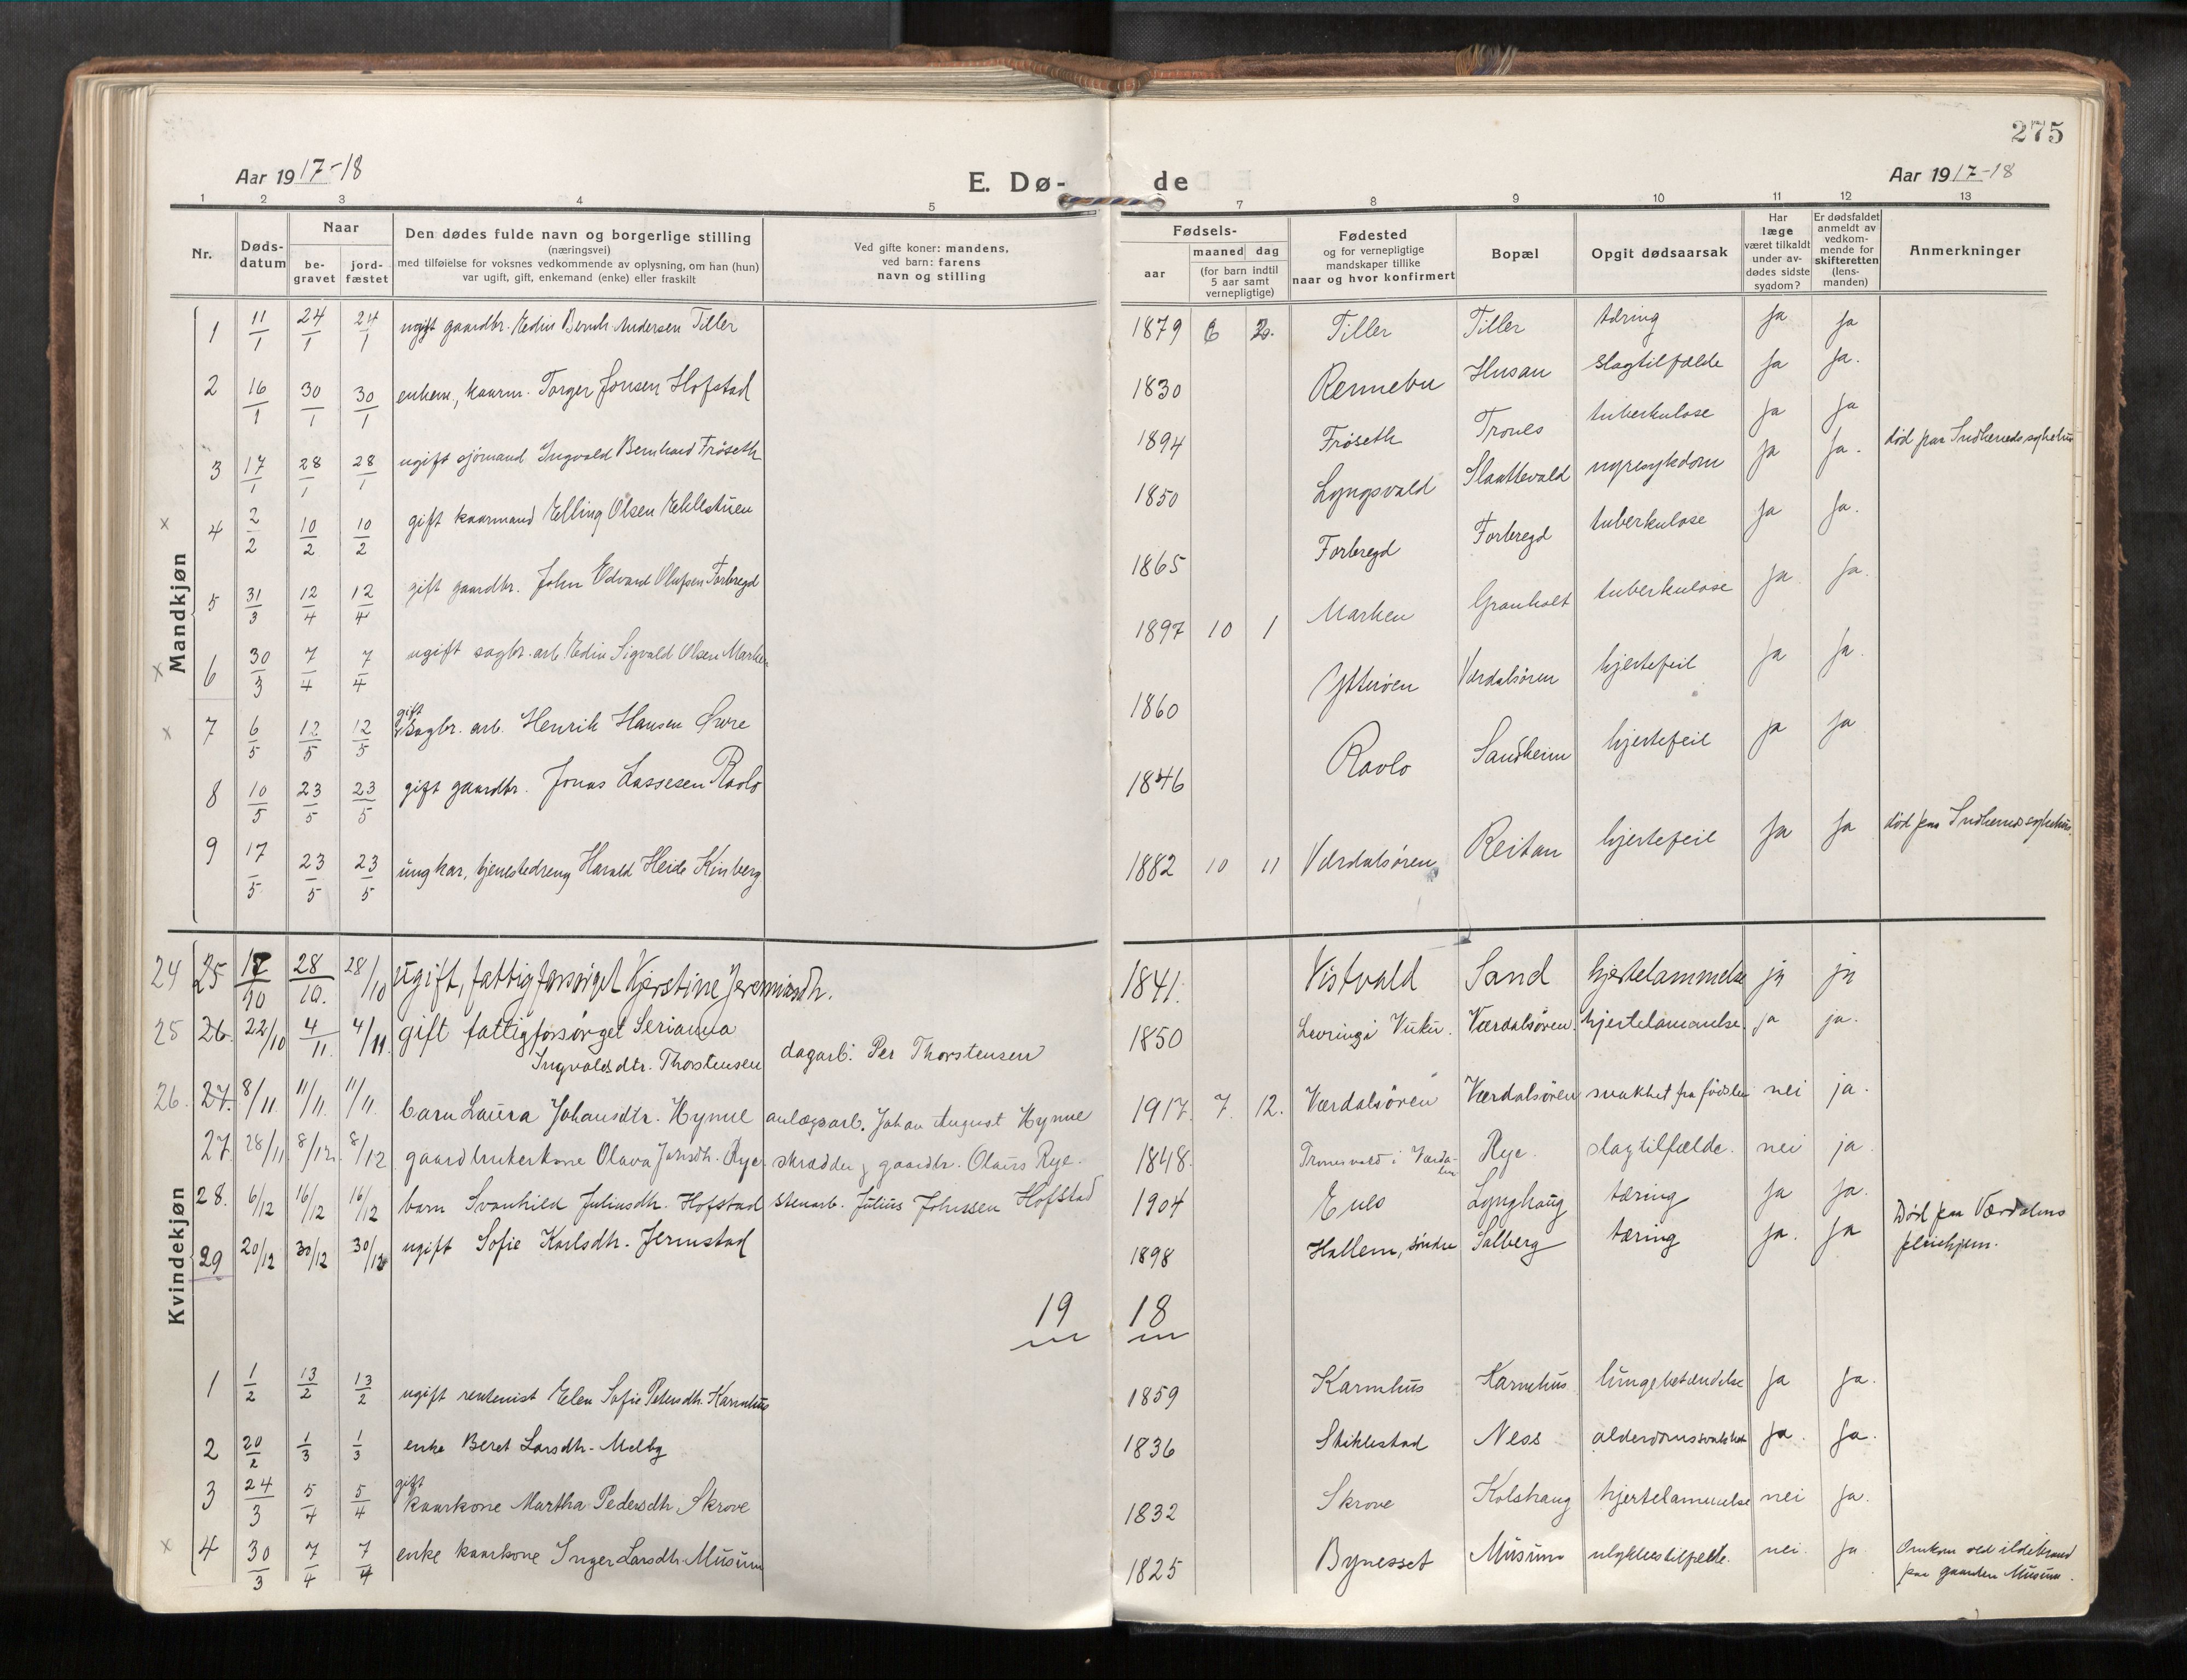 275
Aar 1917-18
E. Dø-
de
Aar 1917-18
1 2 3 4 5 7 8 9 10 11 12 13
Nr.
Døds-
datum
Naar
be-
gravet
jord-
fæstet
Den dødes fulde navn og borgerlige stilling
(næringsvei)
med tilføielse for voksnes vedkommende av oplysning, om han (hun)
var ugift, gift, enkemand (enke) eller fraskilt
Ved gifte koner: mandens,
ved barn: farens
navn og stilling
Fødsels-
aar
maaned dag
(for barn indtil
5 aar samt
vernepligtige)
Fødested
og for vernepligtige
mandskaper tillike
naar og hvor konfirmert
Bopæl
Opgit dødsaarsak
Har
læge
været tilkaldt
under av-
dødes sidste
sygdom?
Er dødsfaldet
anmeldt av
vedkom-
mende for
skifteretten
(lens-
manden)
Anmerkninger
Mandkjøn
1 11/1 24/1 24/1 ugift gaardbr. Edin Bernh. Andersen Tiller 1879 6 Tiller Tiller tæring ja ja
2 16/1 30/1 30/1 enkem., kaarm. Torger Jonsen Hofstad 1830 Rennebu Husan slagtilfælde ja ja.
3 17/1 28/1 28/1 ugift sjömand Ingvald Bernhard Fröseth 1894 Fröseth Trones tuberkulose ja ja død paa Indherreds sykehus
x 4 2/2 10/2 10/2 gift kaarmand Elling Olsen Eklestuen 1850 Lyngsvald Slaattevald nyresykdom ja ja.
5 31/3 12/4 12/4 gift gaardbr. John Edvard Olufsen Forbregd 1865 Forbregd Forbregd tuberkulose ja ja.
x 6 30/3 7/4 7/4 ugift sagbr. arb. Edin Sigvald Olsen Marken 1897 10 1 Marken Granholt tuberkulose ja ja.
x 7 6/5 12/5 12/5 gift sagbr. arb. Henrik Hansen Øvre 1860 Ytterøen Værdalsøren hjertefeil ja ja.
8 10/5 23/5 23/5 gift gaardbr. Jonas Lassesen Ravlo 1846 Ravlo Sandheim hjertefeil ja ja
9 17/5 23/5 23/5 ungkar, tjenestedreng Harald Heide Kinberg 1882 10 11 Værdalsøren Reitan hjertefeil ja ja død paa Indherreds sykehus
Kvindekjøn
24 25 17/10 28/10. 28/10 ugift, fattigforsörget Kjerstine Jeremiasdh. 1841. Vistvald Sand hjertelammelse ja ja
25 26. 22/10 4/11 4/11. gift fattigforsörget Serianna
Ingvaldsdtr. Thorstensen dagarb. Per Thorstensen 1850 Levring i Vuku. Værdalsøren. hjertelammelse. ja ja.
26. 27. 8/11 11/11. 11/11. barn Laura Johansdtr. Hynne anlægsarb. Johan August Hynne 1917. 7. 12. Værdalsören Værdalsören svakhet fra födslen nei ja.
27. 28/11 8/12. 8/12 gaardbrukerkone Olava Jonsdh. Rye. skrædder og gaardbr. Olaus Rye. 1848. Tronesvald i Værda-
len Rye. slagtilfælde. nei ja
28. 6/12 16/12 16/12 barn Svanhild Juliusdh. Hofstad stenarb. Julius Johnssen Hofstad 1904 Eklo Lynghaug tæring ja ja.
29 20/12 30/12 30/12 ugift Sofie Karlsdh. Jermstad 1898 Hallem, söndre Salberg tæring ja. ja Död paa Værdalens
pleiehjem.
19 18
1 1/2 13/2 13/2 ugift rentenist Elen Sofie Petersdh. Karmhus 1859 Karmhus Karmhus lungebetændelse ja ja.
2 20/2 1/3 1/3 enke Beret Larsdh. Melby 1836 Stiklestad Ness alderdomssvakhet ja. ja.
3 24/3 5/4 5/4 gift kaarkone Martha Pedersdh. Skrove 1832 Skrove Kolshaug hjertelammelse nei ja.
x 4 30/3 7/4 7/4 enke kaarkone Inger Larsdh. Musum 1825 Bynesset Musum ulykkestilfælde. nei. ja Omkom ved ildebrand
paa gaarden Musum.